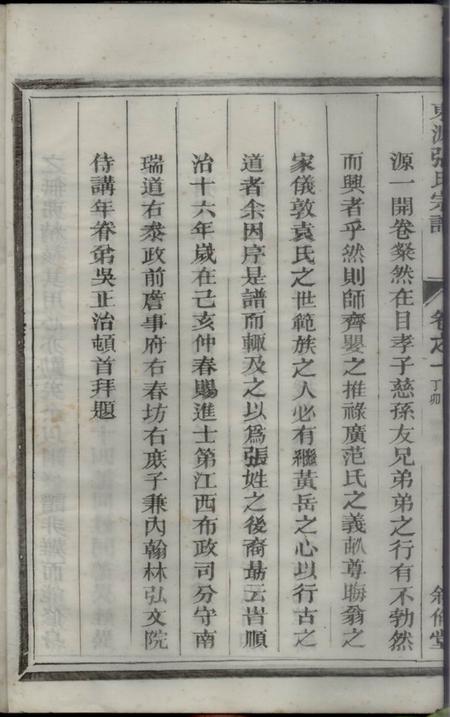 東源張氏宗譜 卷之一 丁卯 敘倫堂
源一開卷粲然在目孝子慈孫友兄弟弟之行有不勃然
而興者乎然則師齊嬰之推祿廣范氏之義畝尊晦翁之
家儀敦袁氏之世範族之人必有繼黃岳之心以行古之
道者余因序是譜而輒及之以爲張姓之後裔勗云旹順
治十六年歲在己亥仲春賜進士第江西布政司分守南
瑞道右叅政前詹事府右春坊右庶子兼內翰林弘文院
侍講年眷弟吳正治頓首拜題